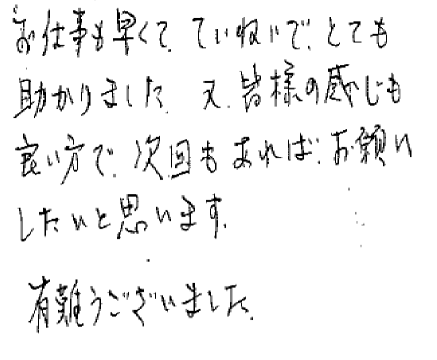 お仕事も早くて、ていねいで、とても
助かりました。又、皆様の感じも
良い方で、次回もあれば、お願い
したいと思います。
有難うございました。